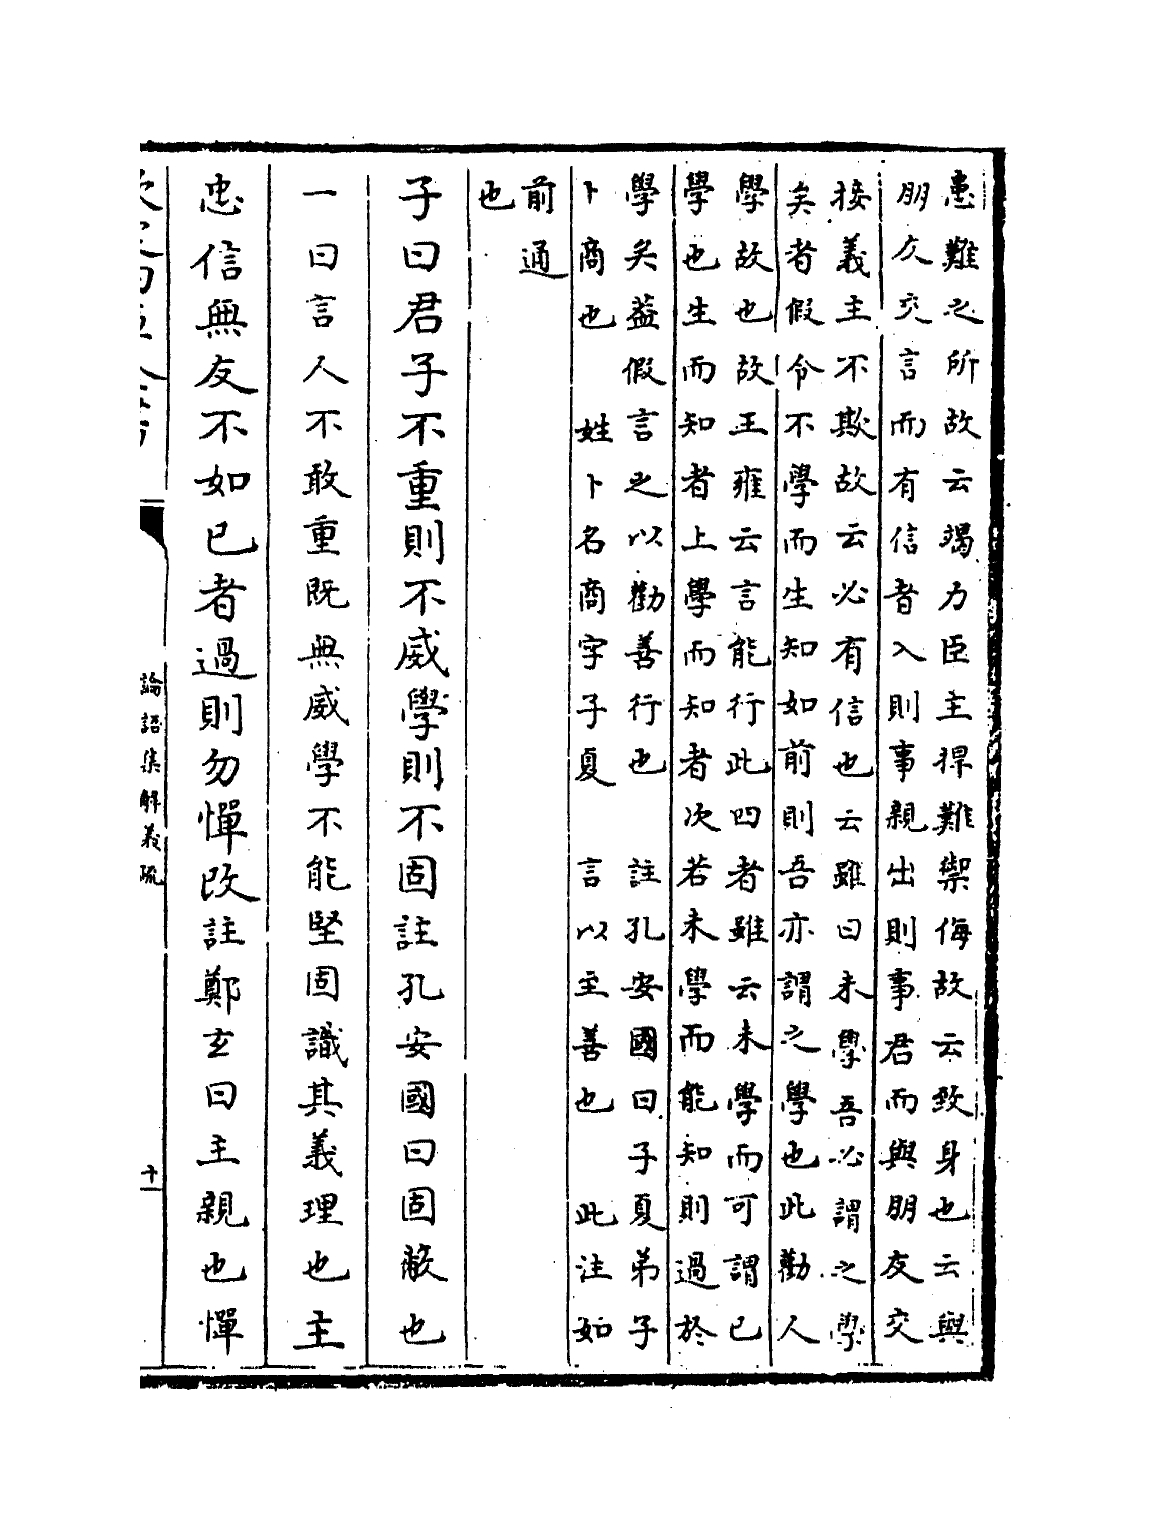 患難之所故云竭力臣主捍難禦侮故云致身也云與
朋友交言而有信者入則事親出則事君而與朋友交
接義主不欺故云必有信也云雖曰未學吾必謂之學
矣者假令不學而生知如前則吾亦謂之學也此勸人
學故也故王雍云言能行此四者雖云未學而可謂已
學也生而知者上學而知者次若未學而能知則過於
學矣蓋假言之以勸善行也　註孔安國曰子夏弟子
卜商也　姓卜名商字子夏　言以主善也　此注如
前通
也
子曰君子不重則不威學則不固註孔安國曰固蔽也
一曰言人不敢重既無威學不能堅固識其義理也主
忠信無友不如已者過則勿憚改註鄭玄曰主親也憚
論語集解義疏
十